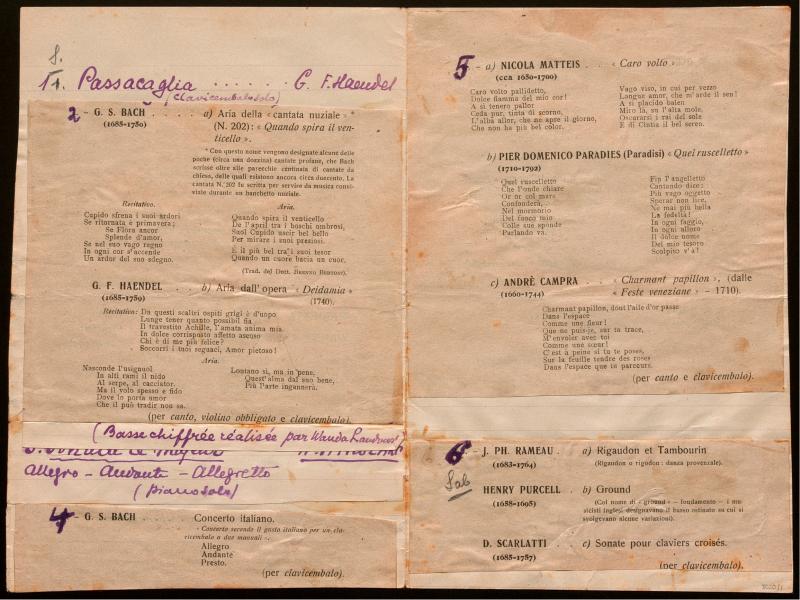 1. Passacaglia . . . . . . G. F. Haendel
(clavicembalo solo)
2 – G. S. BACH . . . . . a) Aria della « cantata nuziale » *
(1685-1750) (N. 202): « Quando spira il ven-
ticello ».
* Con questo nome vengono designate alcune delle
poche (circa una dozzina) cantate profane, che Bach
scrisse oltre alle parecchie centinaia di cantate da
chiesa, delle quali restano ancora circa duecento. La
cantata N. 202 fu scritta per servire da musica convi-
viale durante un banchetto nuziale.
Recitativo.
Cupido sfrena i suoi ardori
Se ritornata è primavera;
Se Flora ancor
Splende d'amor,
Se nel suo vago regno
In ogni cor s'accende
Un ardor del suo sdegno.
Aria.
Quando spira il venticello
De l'april tra i boschi ombrosi,
Suol Cupido uscir bel bello
Per mirare i suoi preziosi.
E il più bel tra'i suoi tesor
Quando un cuore bacia un cuor.
(Trad. del Dott.
G. F. HAENDEL . . . . b) Aria dall'opera « Deidamia »
(1685-1759) (1740).
Recitativo: Da questi scaltri ospiti grigi è d'uopo
Lunge tener quanto possibil fia
Il travestito Achille, l'amata anima mia.
In dolce corrisposto affetto ascuso
Chi è di me più felice?
Soccorri i tuoi seguaci, Amor pietoso!
Aria.
Nasconde l'usignuol
In alti rami il nido
Al serpe, al cacciator.
Ma il volo spesso e fido
Dove lo porta amor
Che il può tradir non sa.
Lontano sì, ma in pene,
Quest'alma dal suo bene,
Più l'arte ingannerà.
(per canto, violino obbligato e clavicembalo).
(Basse chiffrée réalisée par Wanda
Allegro – Andante – Allegretto
(piano solo)
4 – G. S. BACH . . . . . Concerto italiano.
- Concerto secondo il gusto italiano per un cla-
vicembalo a due manuali -.
Allegro
Andante
Presto.
(per clavicembalo).
5 – a) NICOLA MATTEIS . . . « Caro volto »
(cca 1650-1700)
Caro volto pallidetto,
Dolce fiamma del mio cor!
A sì tenero pallor
Ceda pur, tinta di scorno,
L'alba allor, che ne apre il giorno,
Che non ha più bel color.
Vago viso, in cui per vezzo
Langue amor, che m'arde il sen!
A sì placido balen
Miro là, su l'alta mole,
Oscurarsi i rai del sole
E di Cintia il bel seren.
b) PIER DOMENICO PARADIES (Paradisi) « Quel ruscelletto »
(1710-1792)
Quel ruscelletto
Che l'onde chiare
Or or col mare
Confonderà,
Nel mormorio
Del fonco mio
Colle sue sponde
Parlando va.
Fin l'augelletto
Cantando dice:
Più vago oggetto
Sperar non lice,
Nè mai più bella
La fedeltà!
In ogni faggio,
In ogni alloro
Il dolce nome
Del mio tesoro
Scolpito v'à!
c) ANDRÈ CAMPRA . . . « Charmant papillon », (dalle
(1660-1744) « Feste veneziane » – 1710).
Charmant papillon, dont l'aile d'or passe
Dans l'espace
Comme une fleur!
Que ne puis-je, sur ta trace,
M'envoler avec toi
Comme une sœur!
C'est à peine si tu te poses,
Sur la feuille tendre des roses
Dans l'espace que te parcours.
(per canto e clavicembalo).
6 – J. PH. RAMEAU . . a) Rigaudon et Tambourin
(1683-1764) (Rigaudon o rigodon: danza provenzale).
HENRY PURCELL . b) Ground
(1658-1695) (Col nome di « ground » – fondamento – i mu-
sicisti inglesi designavano il basso ostinato su cui si
svolgevano alcune variazioni).
D. SCARLATTI . . c) Sonate pour claviers croisés.
(1685-1757)
(per clavicembalo).